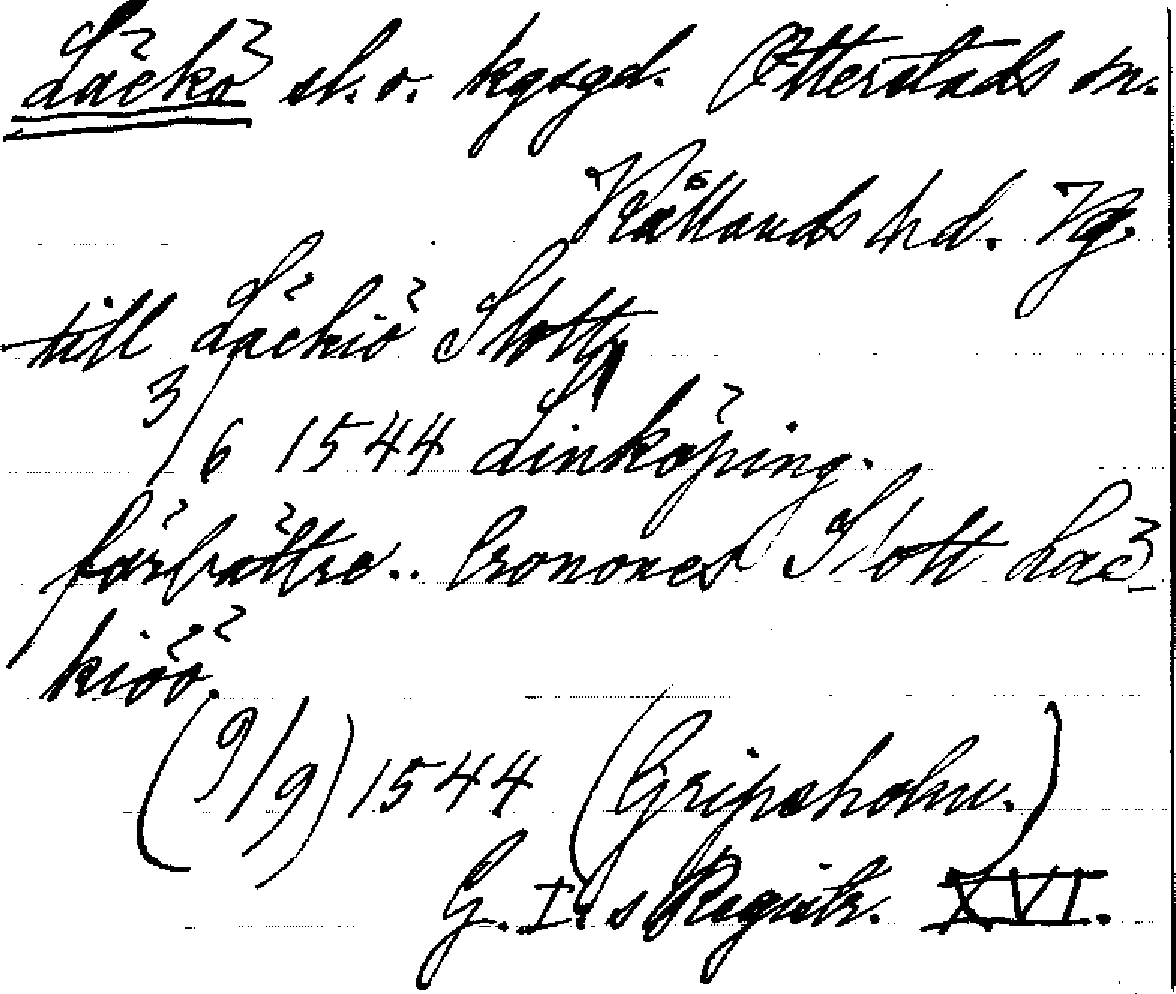 Läckö sl. o. kgsgd. Otterstads sn.
Kållands hd. Vg.
till Läckiö Slott,
3/6 1544 Linköping.
förbättre.. Cronones Slott Läc-
kiöö.
(9/9) 1544 (Gripsholm.)
G. I:s Registr. XVI.